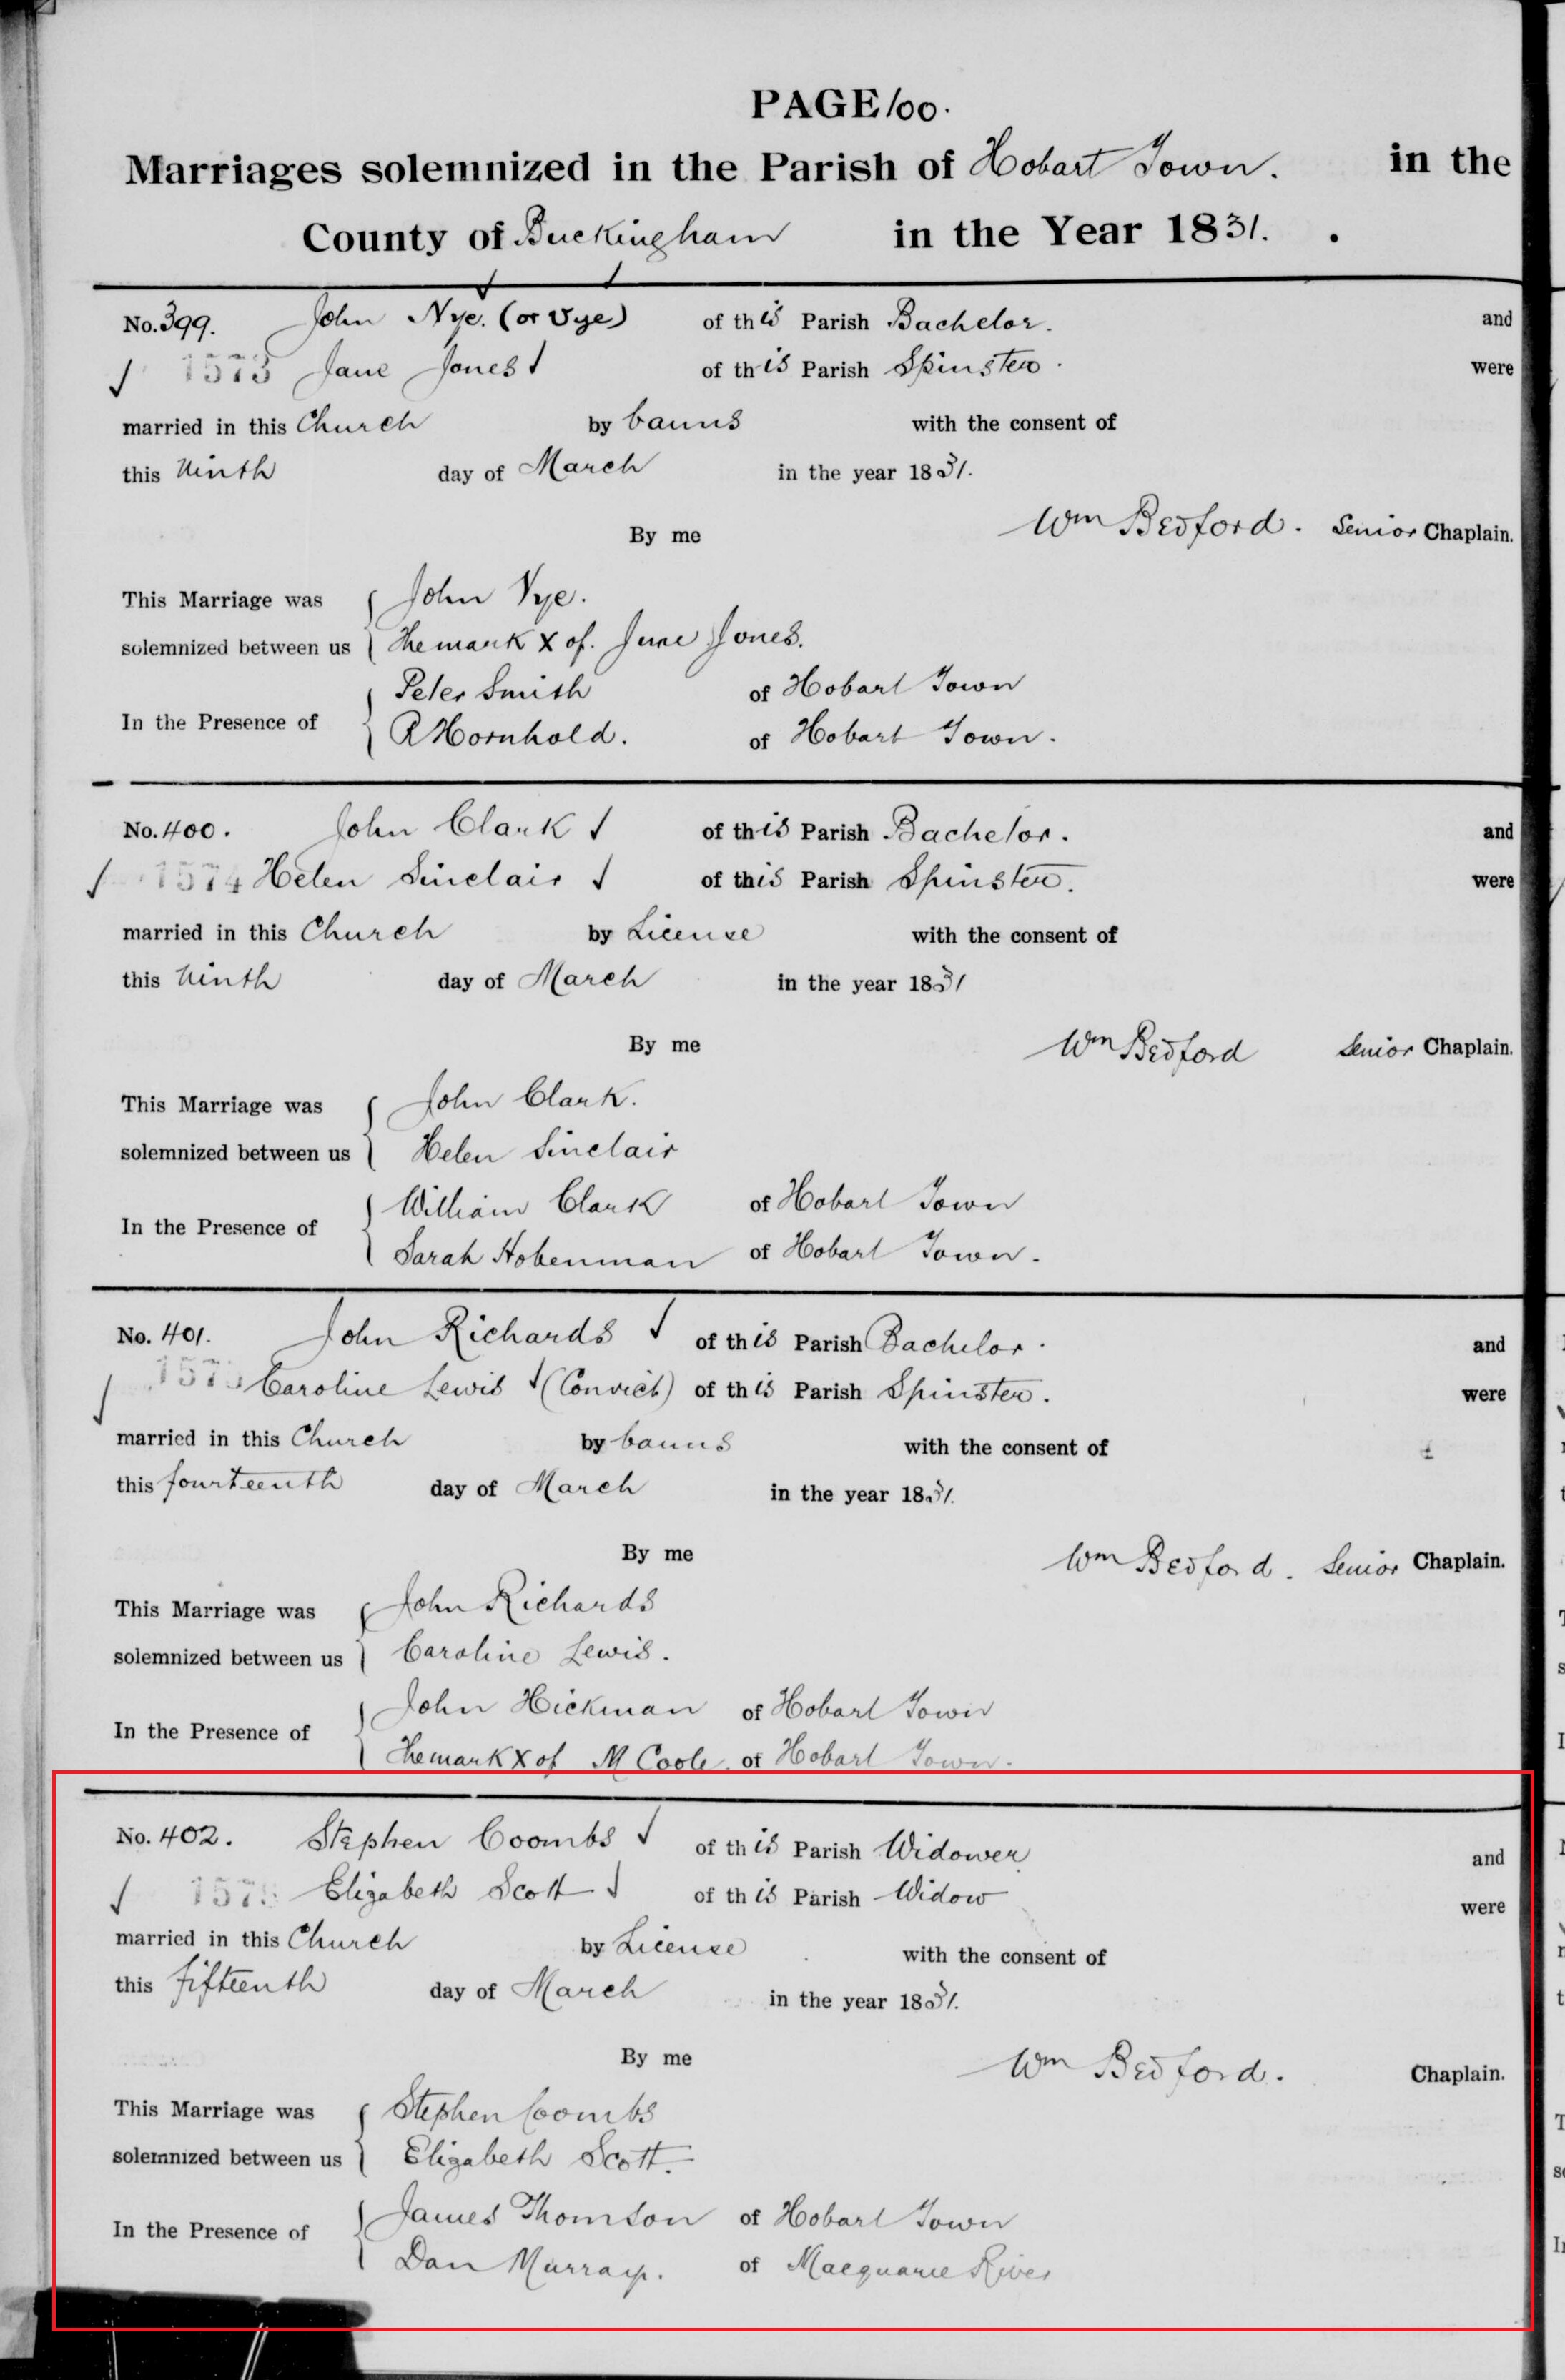 PAGE 100.
Marriages solemnized in the Parish of Hobart Town. in the
County of Buckingham in the Year 1831.
No. 399. John Nye. (or Vye) of this Parish Bachelor. and
1573 Jane Jones of this Parish Spinster. were
married in this Church by banns with the consent of
this Ninth day of March in the year 1831.
By me Wm Bedford. Senior Chaplain.
This Marriage was John Vye.
solemnized between us The mark X of. Jane Jones.
Peter Smith of Hobart Town
In the Presence of
R Hornhold. of Hobart Town.
No. 400. John Clark of this Parish Bachelor. and
1574 Helen Sinclair of this Parish Spinster. were
married in this Church by License with the consent of
this Ninth day of March in the year 1831
By me Wm Bedford Senior Chaplain.
This Marriage was John Clark.
solemnized between us Helen Sinclair
William Clark of Hobart Town
In the Presence of
Sarah of Hobart Town.
No. 401. John Richards of this Parish Bachelor. and
Caroline Lewis (Convict) of this Parish Spinster. were
married in this Church by banns with the consent of
this fourteenth day of March in the year 1831.
By me Wm Bedford. Senior Chaplain.
This Marriage was John Richards
solemnized between us Caroline Lewis.
John Hickman of Hobart Town
In the Presence of
The mark X of M Coole. of Hobart Town.
No. 402. Stephen Coombs of this Parish Widower and
Elizabeth Scott of this Parish Widow were
married in this Church by License with the consent of
this fifteenth day of March in the year 1831.
By me Wm Bedford. Chaplain.
This Marriage was Stephen Coombs
solemnized between us Elizabeth Scott.
James Thomson of Hobart Town
In the Presence of
Dan Murray. of Macquarie River